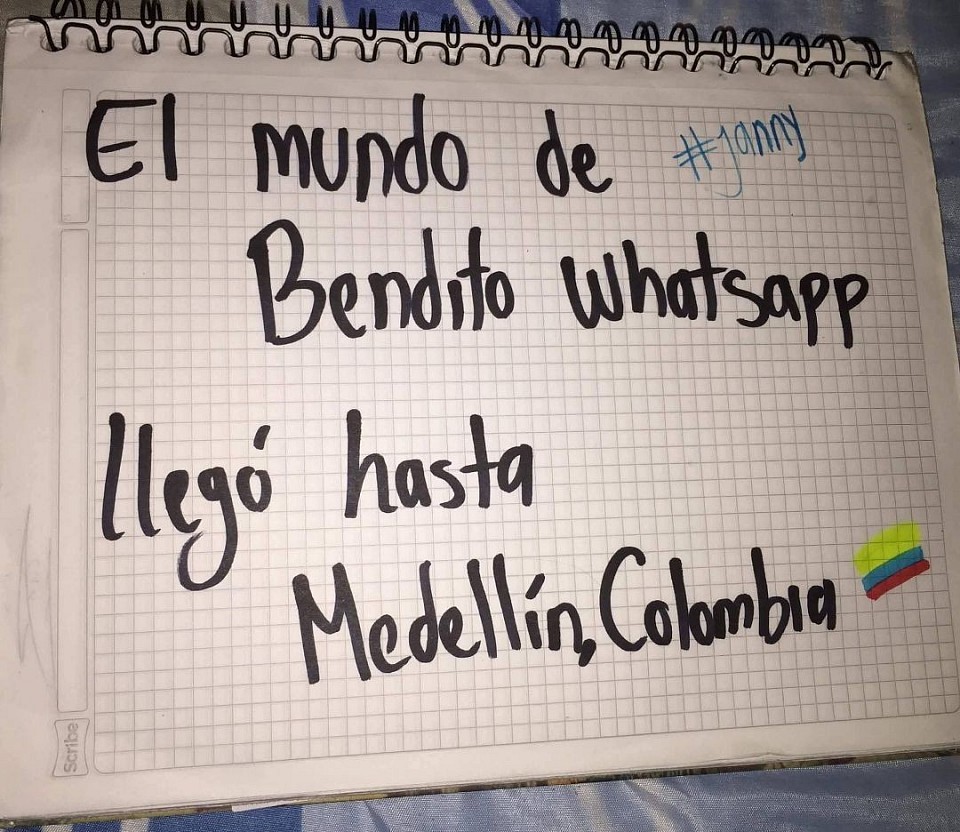 El mundo de #Janny
Bendito Whatsapp
llegó hasta
Medellín, Colombia
Scribe